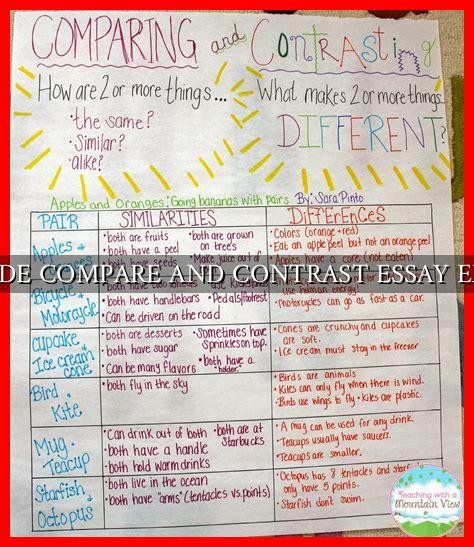 COMPARING and CONTRASTING
How are 2 or more things...
• the same?
• Similar?
• alike?
What makes 2 or more things
DIFFERENT?
Apples and Oranges: Going bananas with pairs By: Sara Pinto
PAIR
SIMILARITIES
DiffERENCeS
Apples +
• both are fruits
• both have a peel
• both have seeds
• both are grown
on trees
• Make juice out of
• Colors (orange + red)
• Eat an apple peel but not an orange peel
• Apples have a core (not eaten)
DE COMPARE AND CONTRAST ESSAY E
Bicycle +
Motorcycle
• both have handlebars
• Can be driven on the road
• Pedals/footrest
use human energy!
• Motorcycles can go as fast as a car.
Cupcake
+
Ice cream
cone
• both are desserts
• both have sugar
• Can be many flavors
• Sometimes have
Sprinkles on top.
• both have a
"holder"
• Cones are crunchy and cupcakes
are soft.
• Ice cream must stay in the freezer
Bird
+
Kite
• both fly in the sky
• Birds are animals
• Kites can only fly when there is wind.
• Birds use wings to fly
• Kites are plastic.
Mug +
Teacup
• Can drink out of both
• both have a handle
• both hold warm drinks
• both are at
Starbucks
• A mug can be used for any drink.
• Teacups usually have saucers.
• Teacups are smaller.
Starfish +
Octopus
• both live in the ocean
• both have "arms" (tentacles vs. points)
• Octopus has 8 tentacles and starfish
only have 5 points.
• Starfish don't swim.
Teaching with a
Mountain View